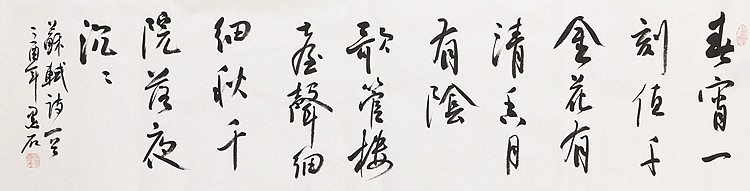 春宵一
刻值千
金花有
清香月
有陰
歌管樓
臺聲細
細秋千
院落夜
沉々
蘇軾詩一首
丁酉年石